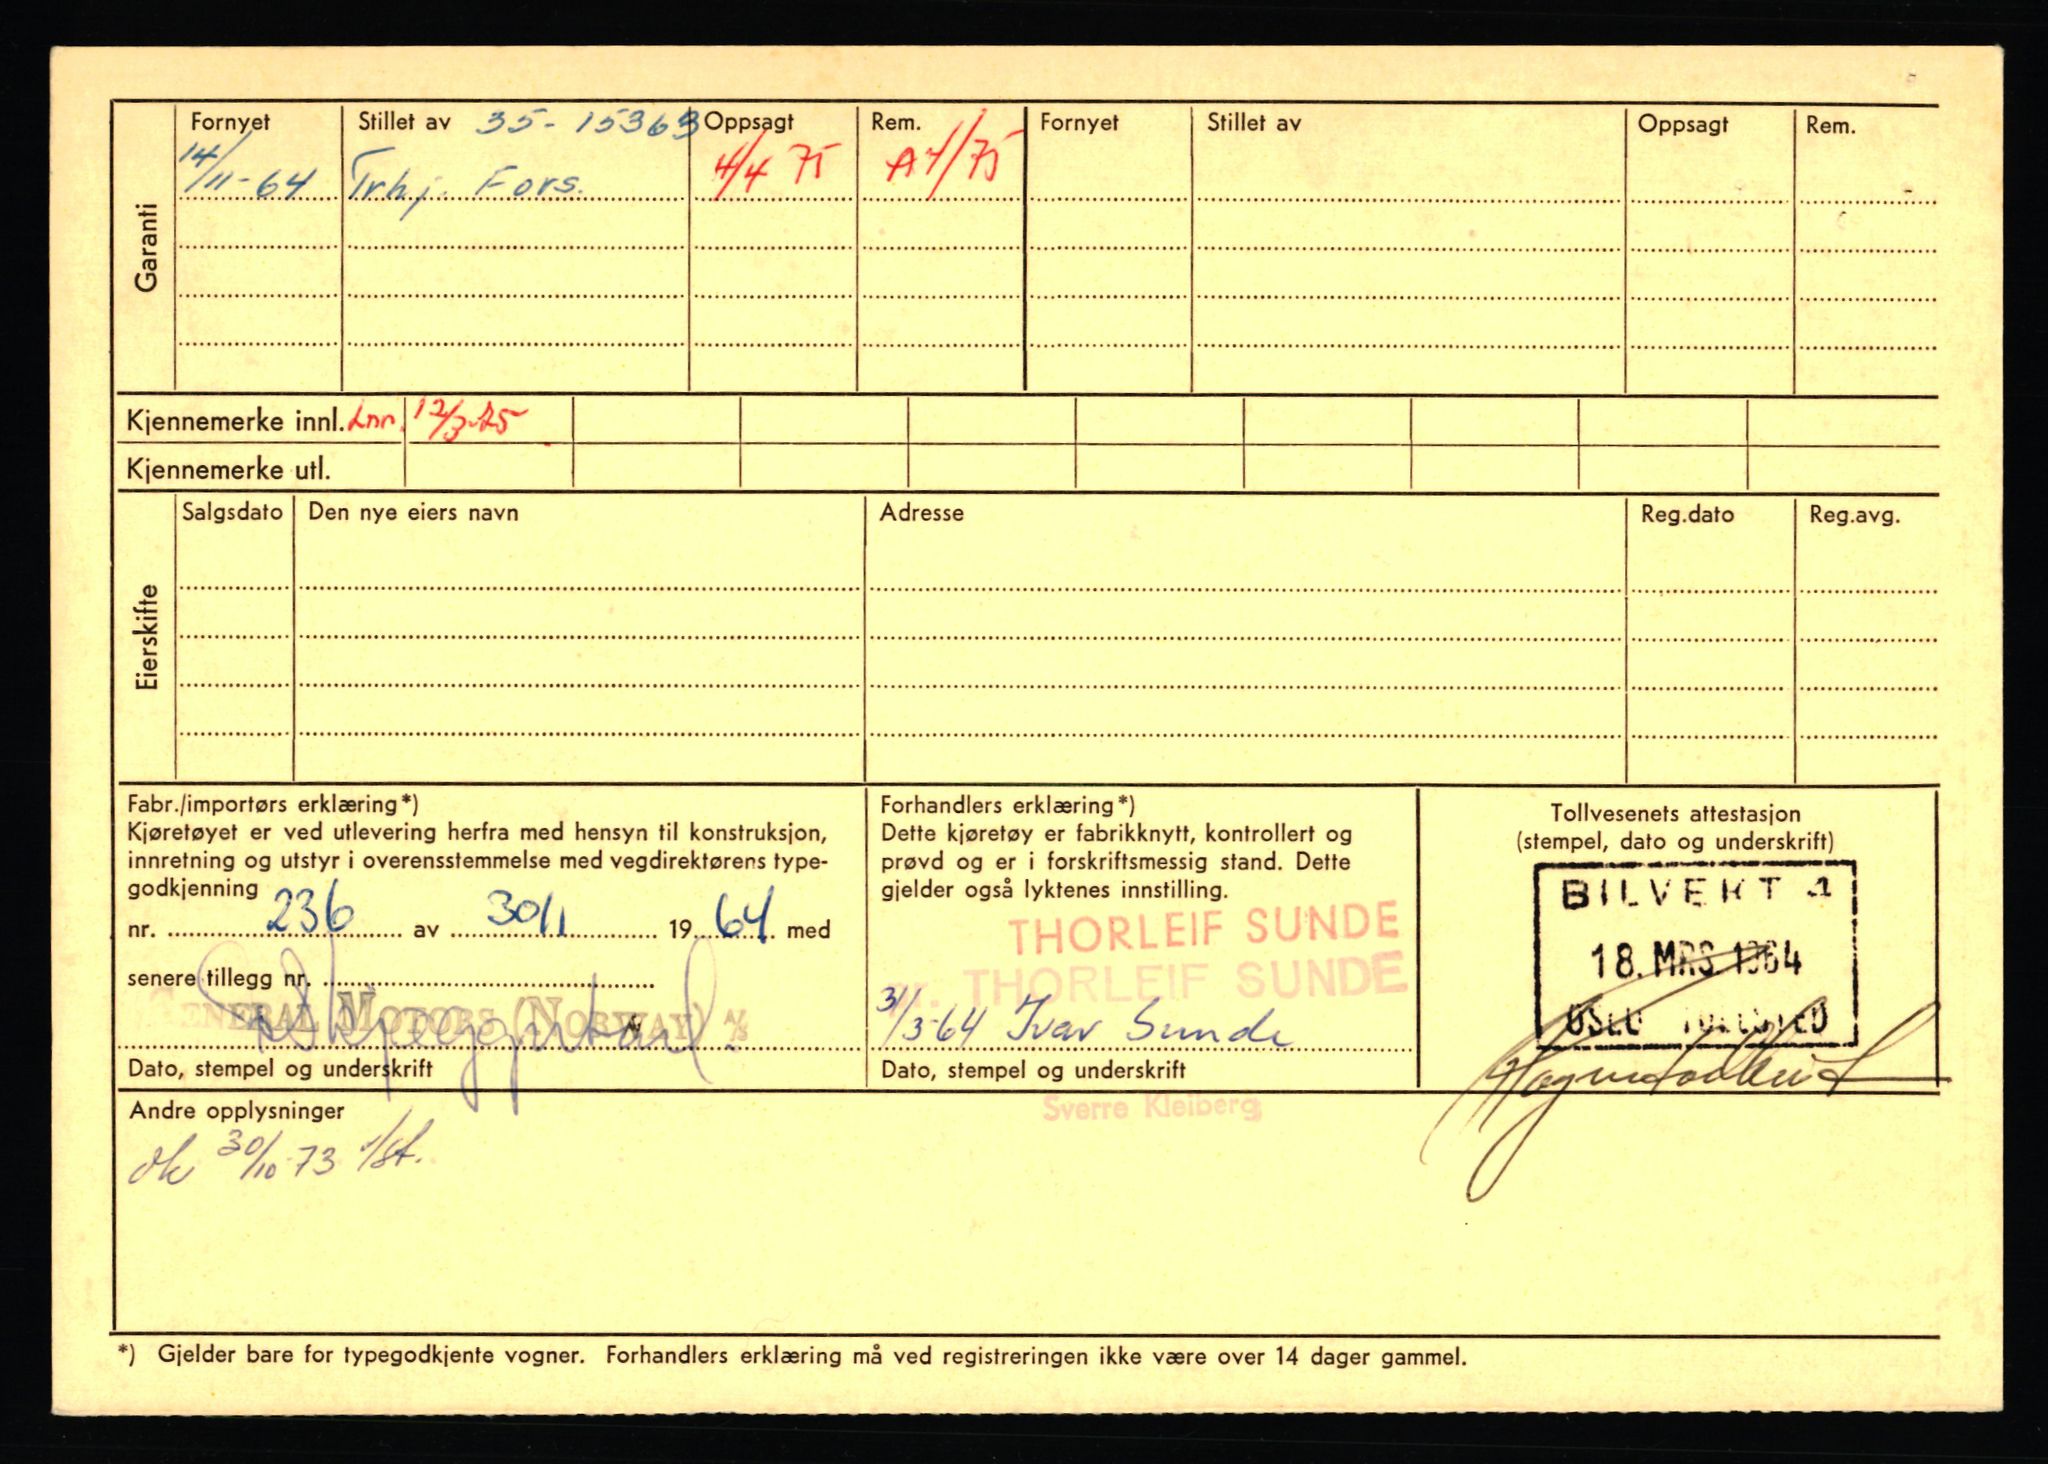 Garanti
Fornyet Stillet av 35-15363 Oppsagt Rem. Fornyet Stillet av Oppsagt Rem.
14/11-64 Trhj. Fors. 4/4 75 A7/75
Kjennemerke innl. Inn. 12/3-75
Kjennemerke utl.
Eierskifte
Salgsdato Den nye eiers navn Adresse Reg.dato Reg.avg.
Fabr./importørs erklæring*)
Kjøretøyet er ved utlevering herfra med hensyn til konstruksjon,
innretning og utstyr i overensstemmelse med vegdirektørens type-
godkjenning
nr. 236 av 30/1 1964 med
senere tillegg nr.
GENERAL MOTORS (NORWAY) A/S
Dato, stempel og underskrift
Forhandlers erklæring*)
Dette kjøretøy er fabrikknytt, kontrollert og
prøvd og er i forskriftsmessig stand. Dette
gjelder også lyktenes innstilling.
THORLEIF SUNDE
THORLEIF SUNDE
31/3-64 Ivar Sunde
Dato, stempel og underskrift
Sverre Kleiberg
Tollvesenets attestasjon
(stempel, dato og underskrift)
BILVERT 4
18. MRS. 1964
OSLO TOLLSTED
Andre opplysninger
ok 30/10-73
*) Gjelder bare for typegodkjente vogner. Forhandlers erklæring må ved registreringen ikke være over 14 dager gammel.